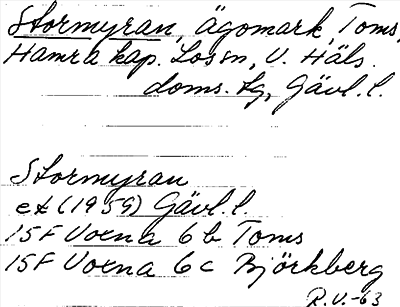 Stormyran, Ägomark, Toms,
Hamra kap. Lossn, V. Häls.
doms. Lg, Gävl. l.
Stormyran
ek (1959) Gävl. l.
15F Voxna 6b Toms
15F Voxna 6c Björkberg
R.V.-63